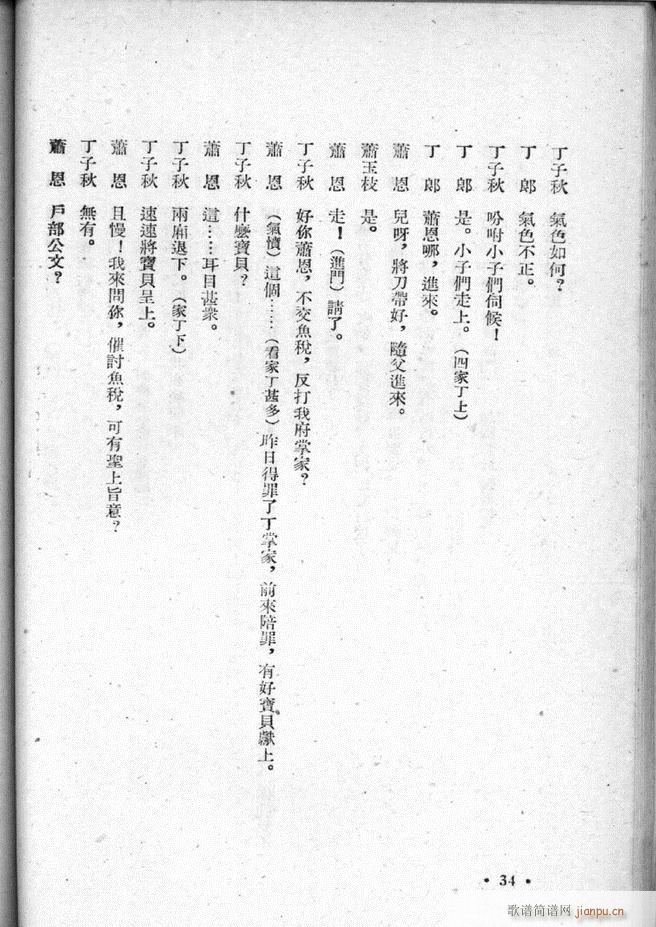 丁子秋　氣色如何？
丁　郞　氣色不正。
丁子秋　吩咐小子們伺候！
丁　郞　是。小子們走上。（四家丁上）
丁　郞　蕭恩哪，進來。
蕭　恩　兒呀，將刀帶好，隨父進來。
蕭玉枝　是。
蕭　恩　走！（進門）請了。
丁子秋　好你蕭恩，不交魚稅，反打我府掌家？
蕭　恩　（氣憤）這個……（看家丁甚多）昨日得罪了丁掌家，前來陪罪，有好寶貝獻上。
丁子秋　什麼寶貝？
蕭　恩　這……耳目甚衆。
丁子秋　兩廂退下。（家丁下）
丁子秋　速速將寶貝呈上。
蕭　恩　且慢！我來問你，催討魚稅，可有聖上旨意？
丁子秋　無有。
蕭　恩　戶部公文？
• 34 •
歌谱简谱网 jianpu.cn